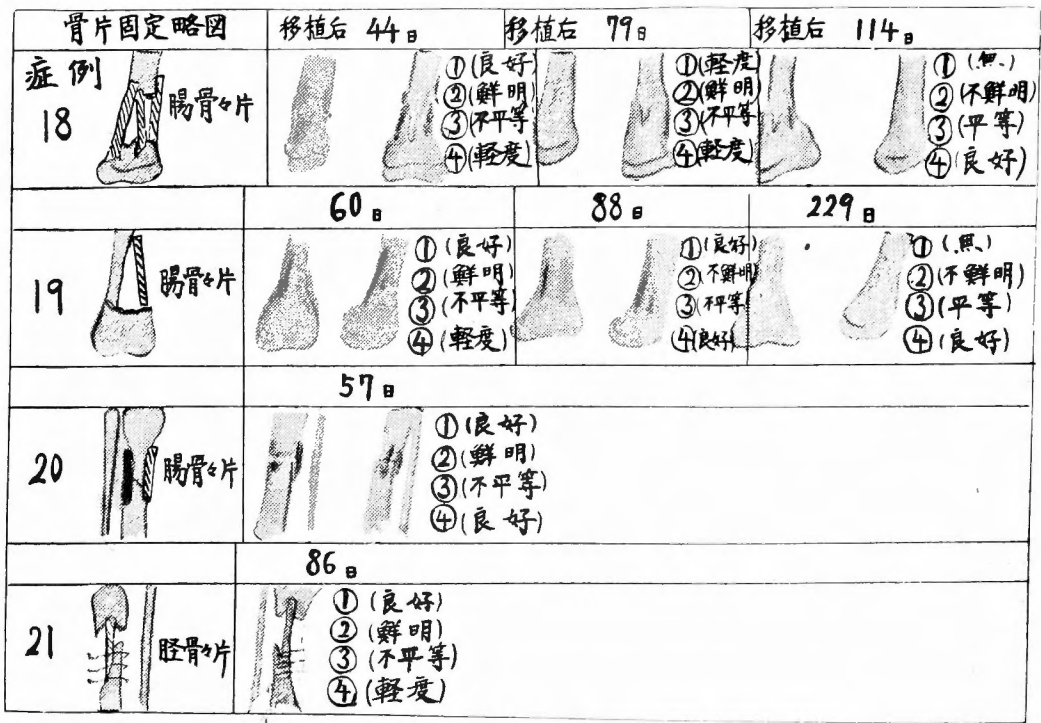 骨片固定略図 移植后 44日 移植后 79日 移植后 114日
症例
18
腸骨々片
①(良好)
②(鮮明)
③(不平等)
④(軽度)
①(軽度)
②(鮮明)
③(不平等)
④(軽度)
①(無)
②(不鮮明)
③(平等)
④(良好)
60日 88日 229日
19
腸骨々片
①(良好)
②(鮮明)
③(不平等)
④(軽度)
①(良好)
②(不鮮明)
③(不平等)
④(良好)
①(無)
②(不鮮明)
③(平等)
④(良好)
57日
20
腸骨々片
①(良好)
②(鮮明)
③(不平等)
④(良好)
86日
21
胫骨々片
①(良好)
②(鮮明)
③(不平等)
④(軽度)